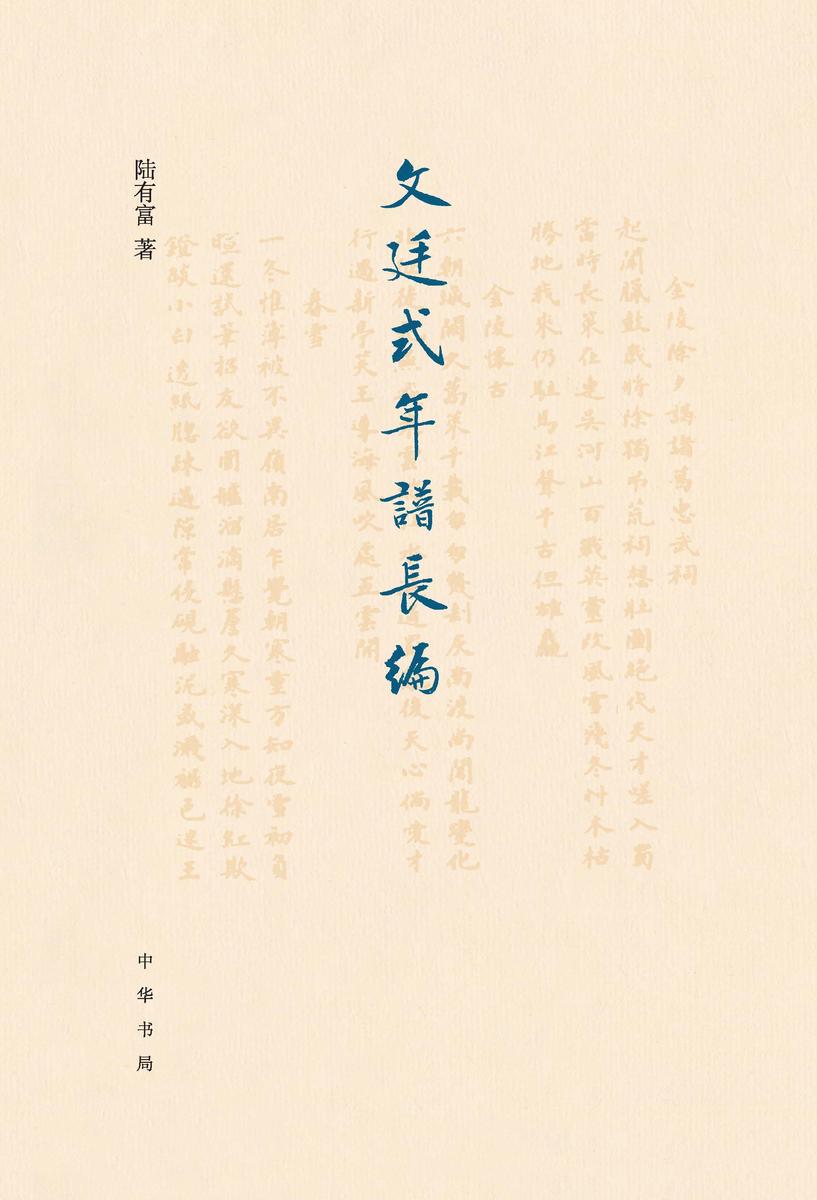 文廷式年譜長編
陆有富 著
中华书局
金陵除夕謁諸葛忠武祠
起聞臘鼓歲將除獨吊荒祠想壯圖絕代天才嗟入蜀
當時長策在連吳河山百戰英靈改風雪殘冬艸木枯
勝地我來仍駐馬江聲千古但雄麤
金陵懷古
六朝城闕久蒿萊千載匆匆幾劫灰南渡尚聞龍變化
後天心倘
行過新亭笑王導海風吹處五雲開
春雪
一冬惟薄被不異嶺南居乍覺朝寒重方知夜雪初負
暄還試筆招友欲圍爐溜滴懸厓久寒深入地徐紅欺
鐙小白透紙牕疎過隙常侵硯融泥或濺裾已連王